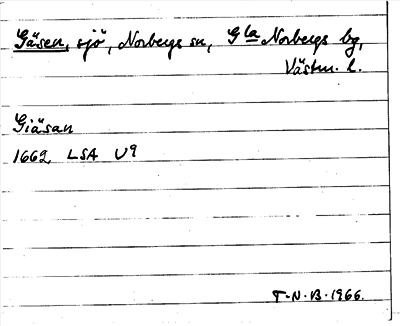 Gåsen, sjö, Norbergs sn, Gla Norbergs bg,
Västm. l.
Giåsan
1662, LSA U9
T-N-B-1966.